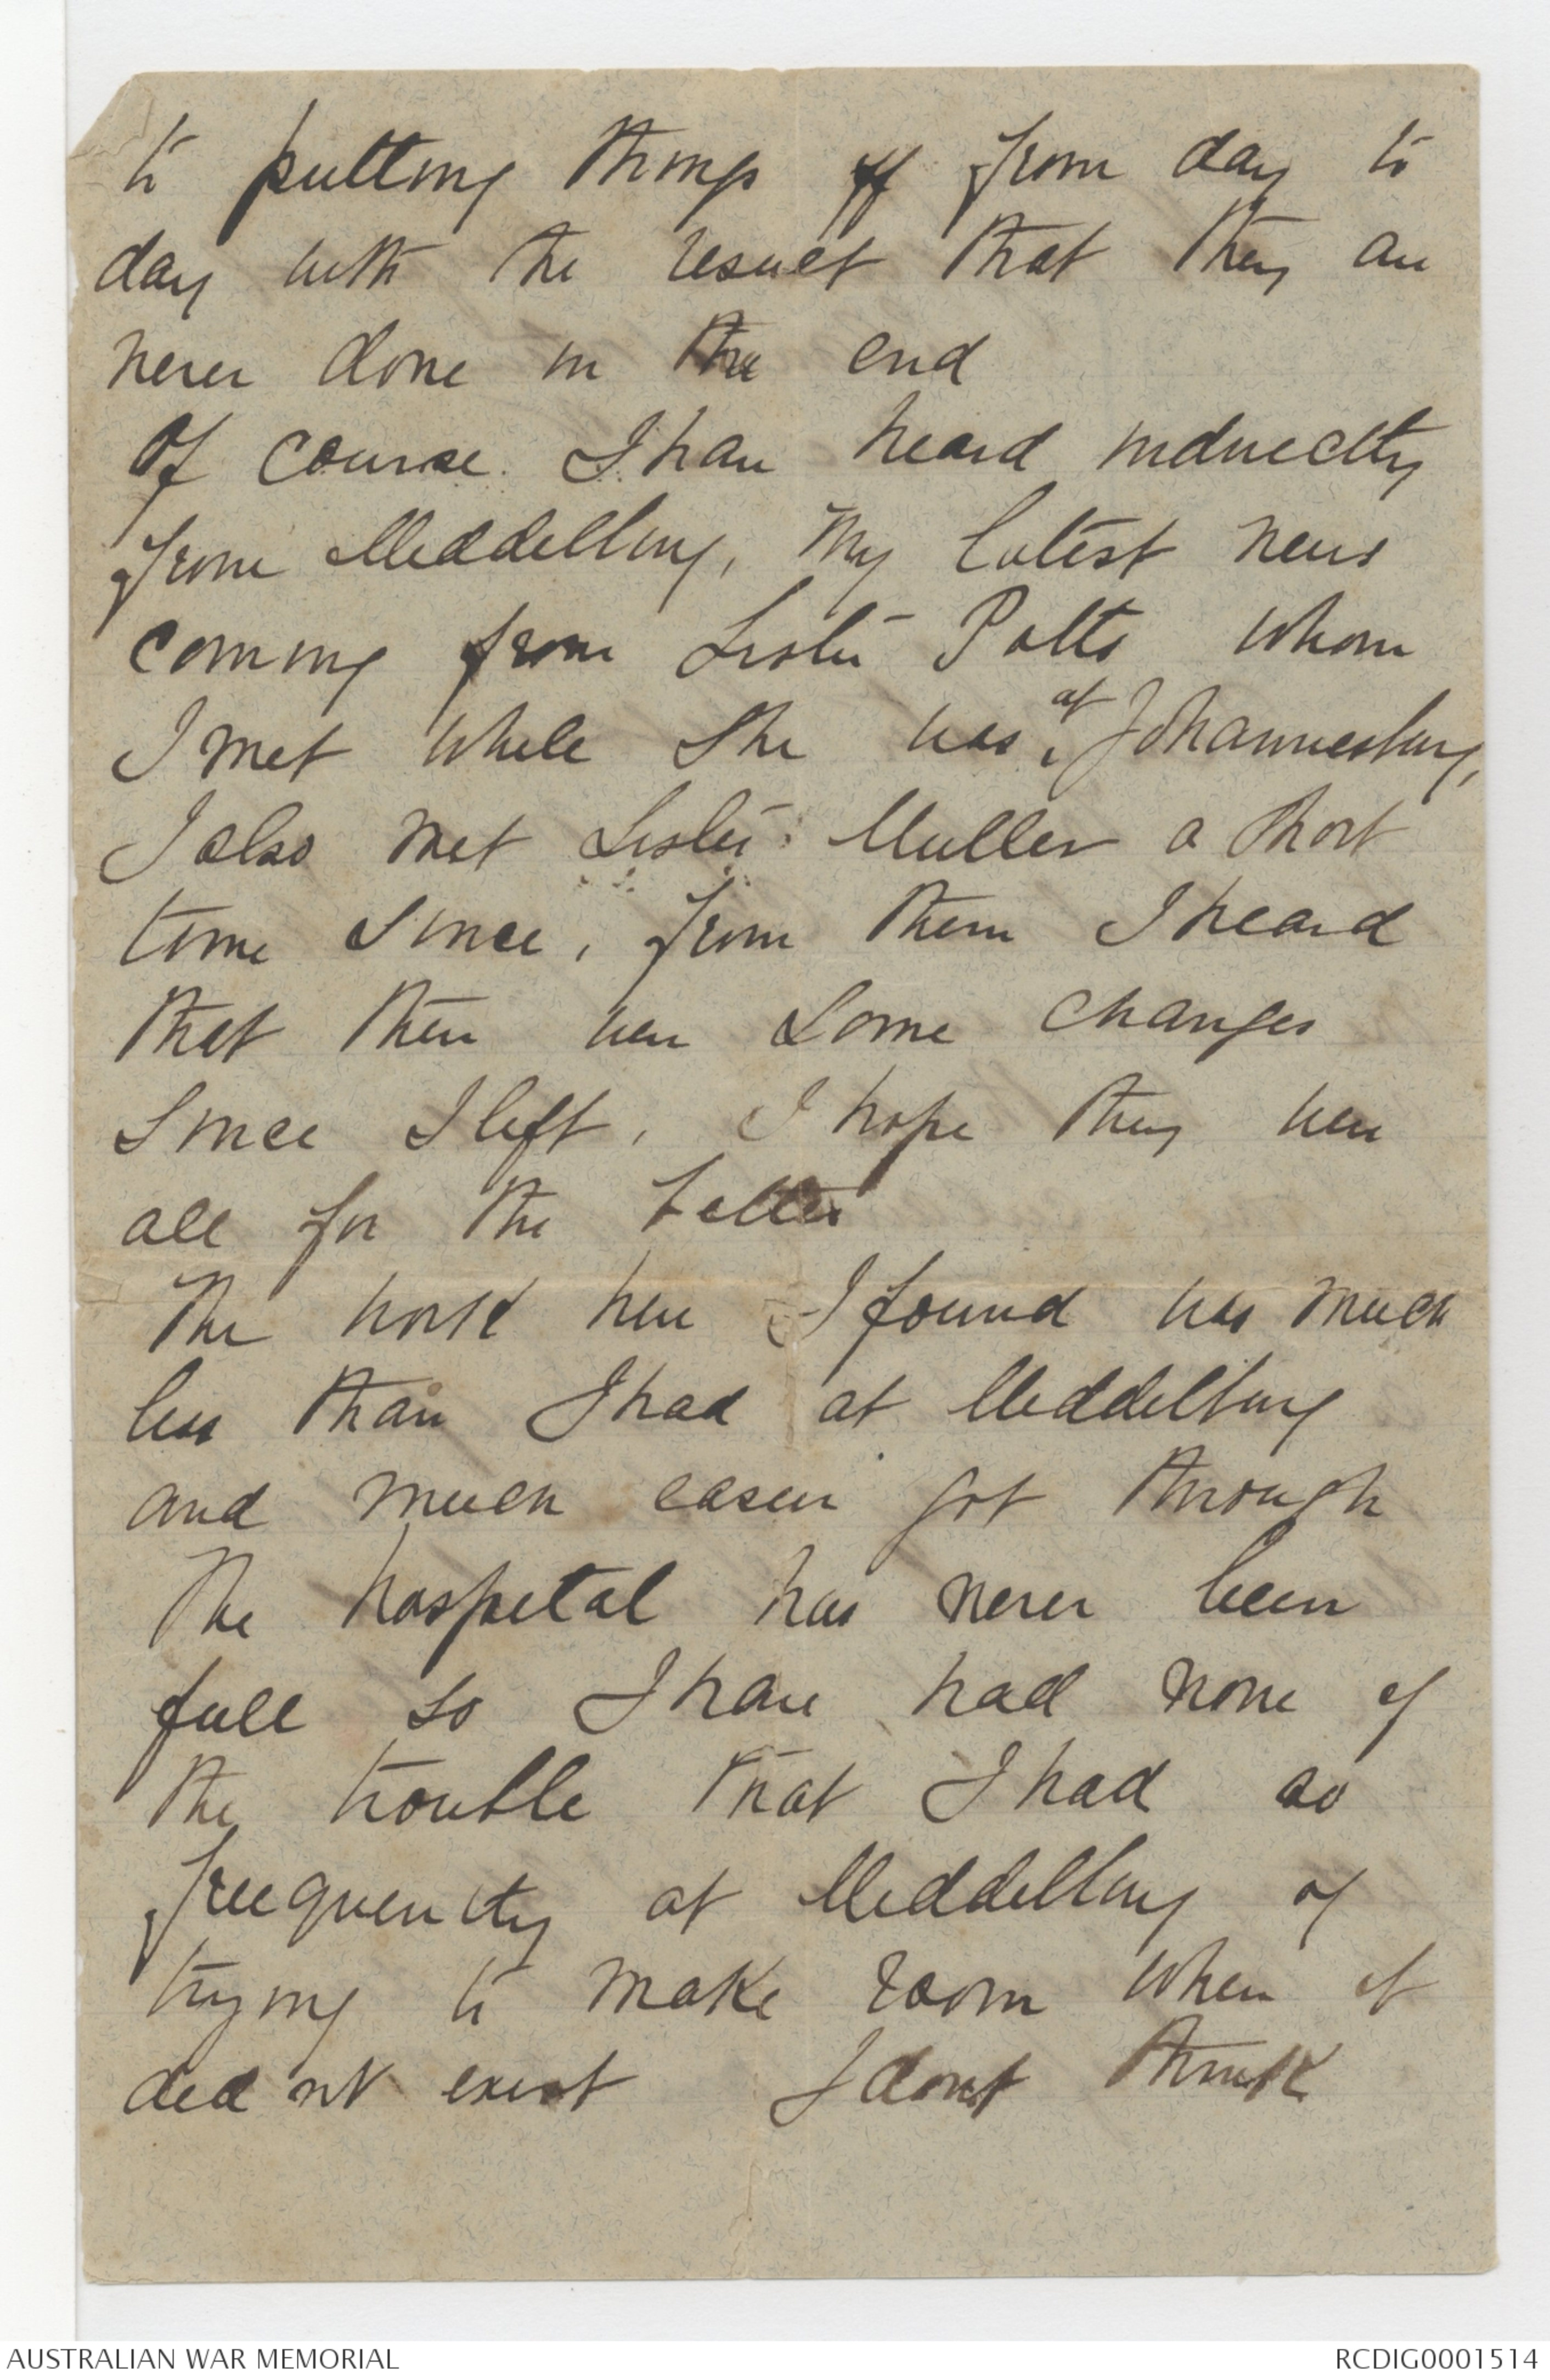 to putting things off from day to
day with the result that they are
never done in the end
Of course I have heard indirectly
from Middelburg, my latest news
coming from Sister Potts whom
I met while she was at Johannesburg,
I also met Sister Muller a short
time since, from them I heard
that there were some changes
since I left, I hope they were
all for the better
The work here I found was much
less than I had at Middelburg
and much easier got through
The hospital has never been
full so I have had none of
the trouble that I had so
frequently at Middelburg of
trying to make room when it
did not exist I dont think
AUSTRALIAN WAR MEMORIAL
RCDIG0001514